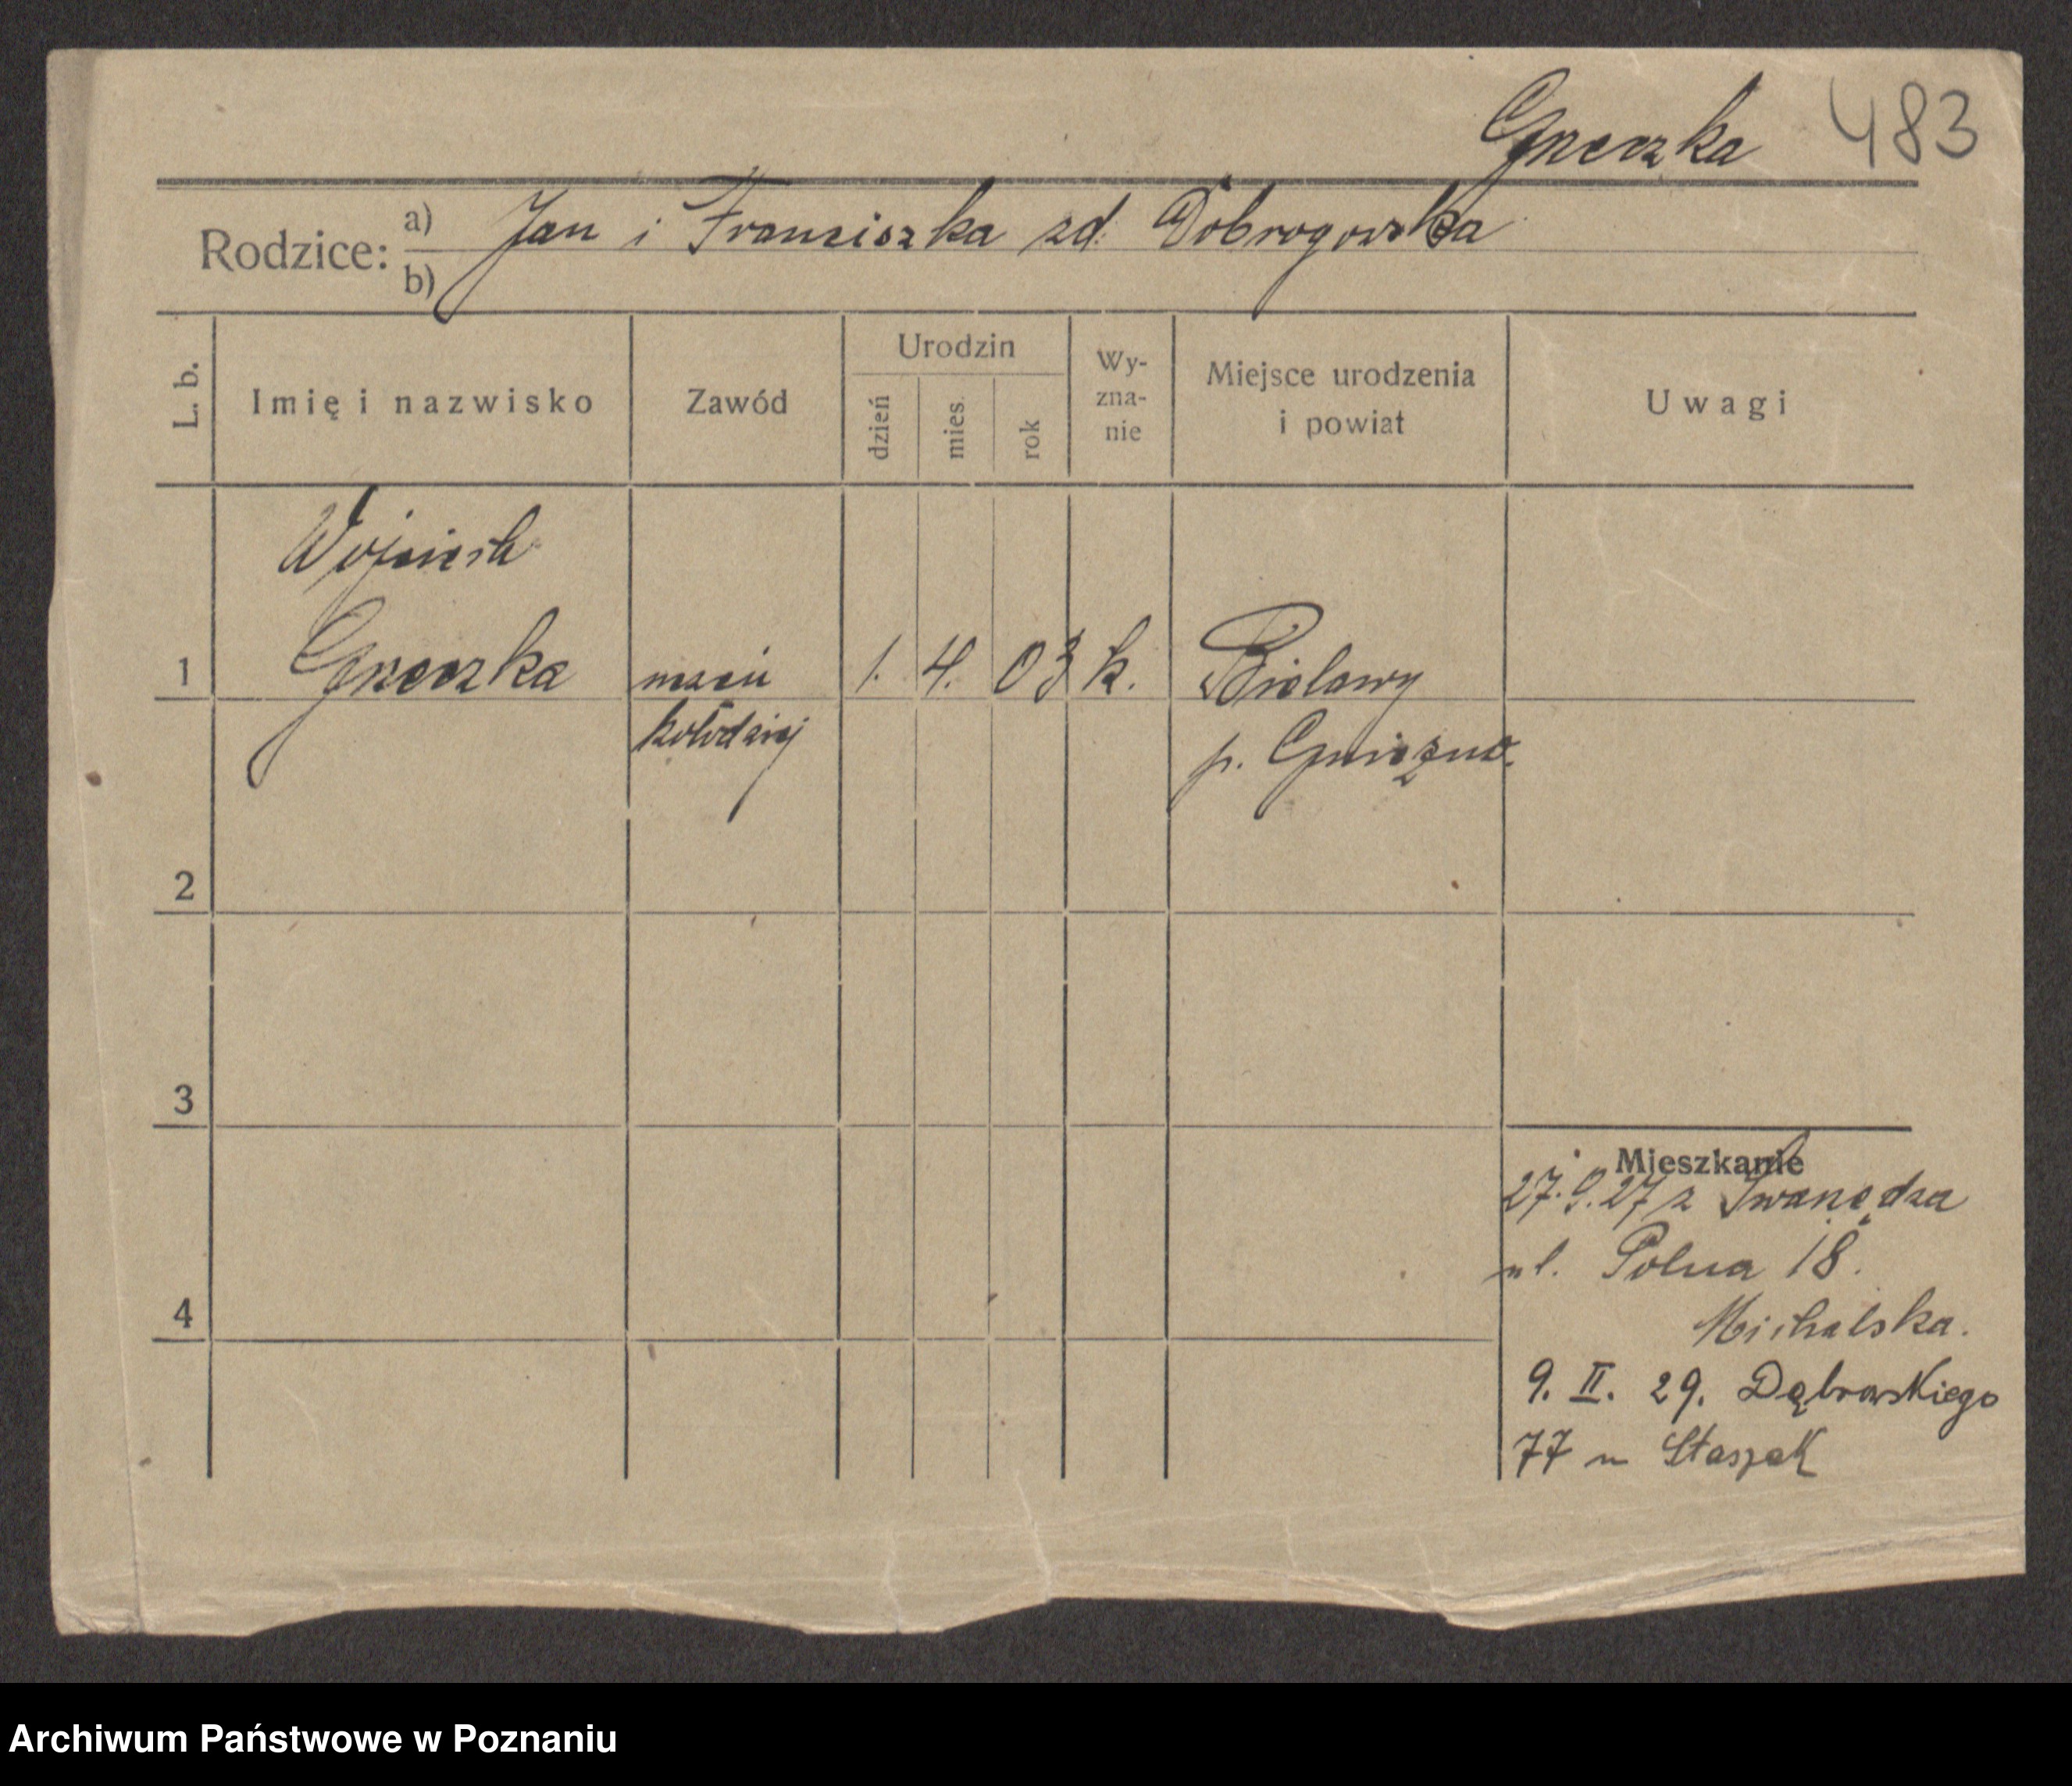 Grzeczka 483
Rodzice: a) b) Jan i Franciszka zd. Dobrogowska
L. b.
Imię i nazwisko
Zawód
Urodzin
dzień
mies.
rok
Wy-
zna-
nie
Miejsce urodzenia
i powiat
Uwagi
Wojciech
1 Grzeczka 1. 4. 03 k. Bielawy
kołodziej p. Gniezno.
2
3
Mieszkanie
27.9.27 z
ul. Polna 18.
4 Michalska.
9. II. 29. Dąbrowskiego
77 u Staszak
Archiwum Państwowe w Poznaniu